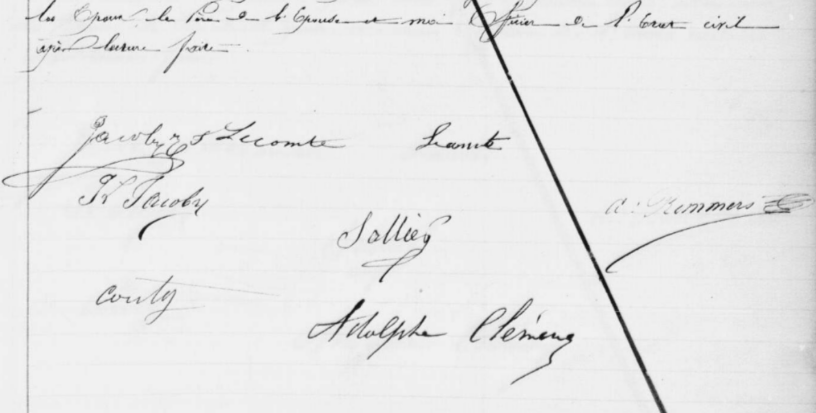 les Epoux, le Père de l'Epouse et moi Officier de l'Etat civil
après lecture faite.
Jacoby Lecomte Lecomte
Jacoby
A. Remmers
Sallier
Couty
Adolphe Clément